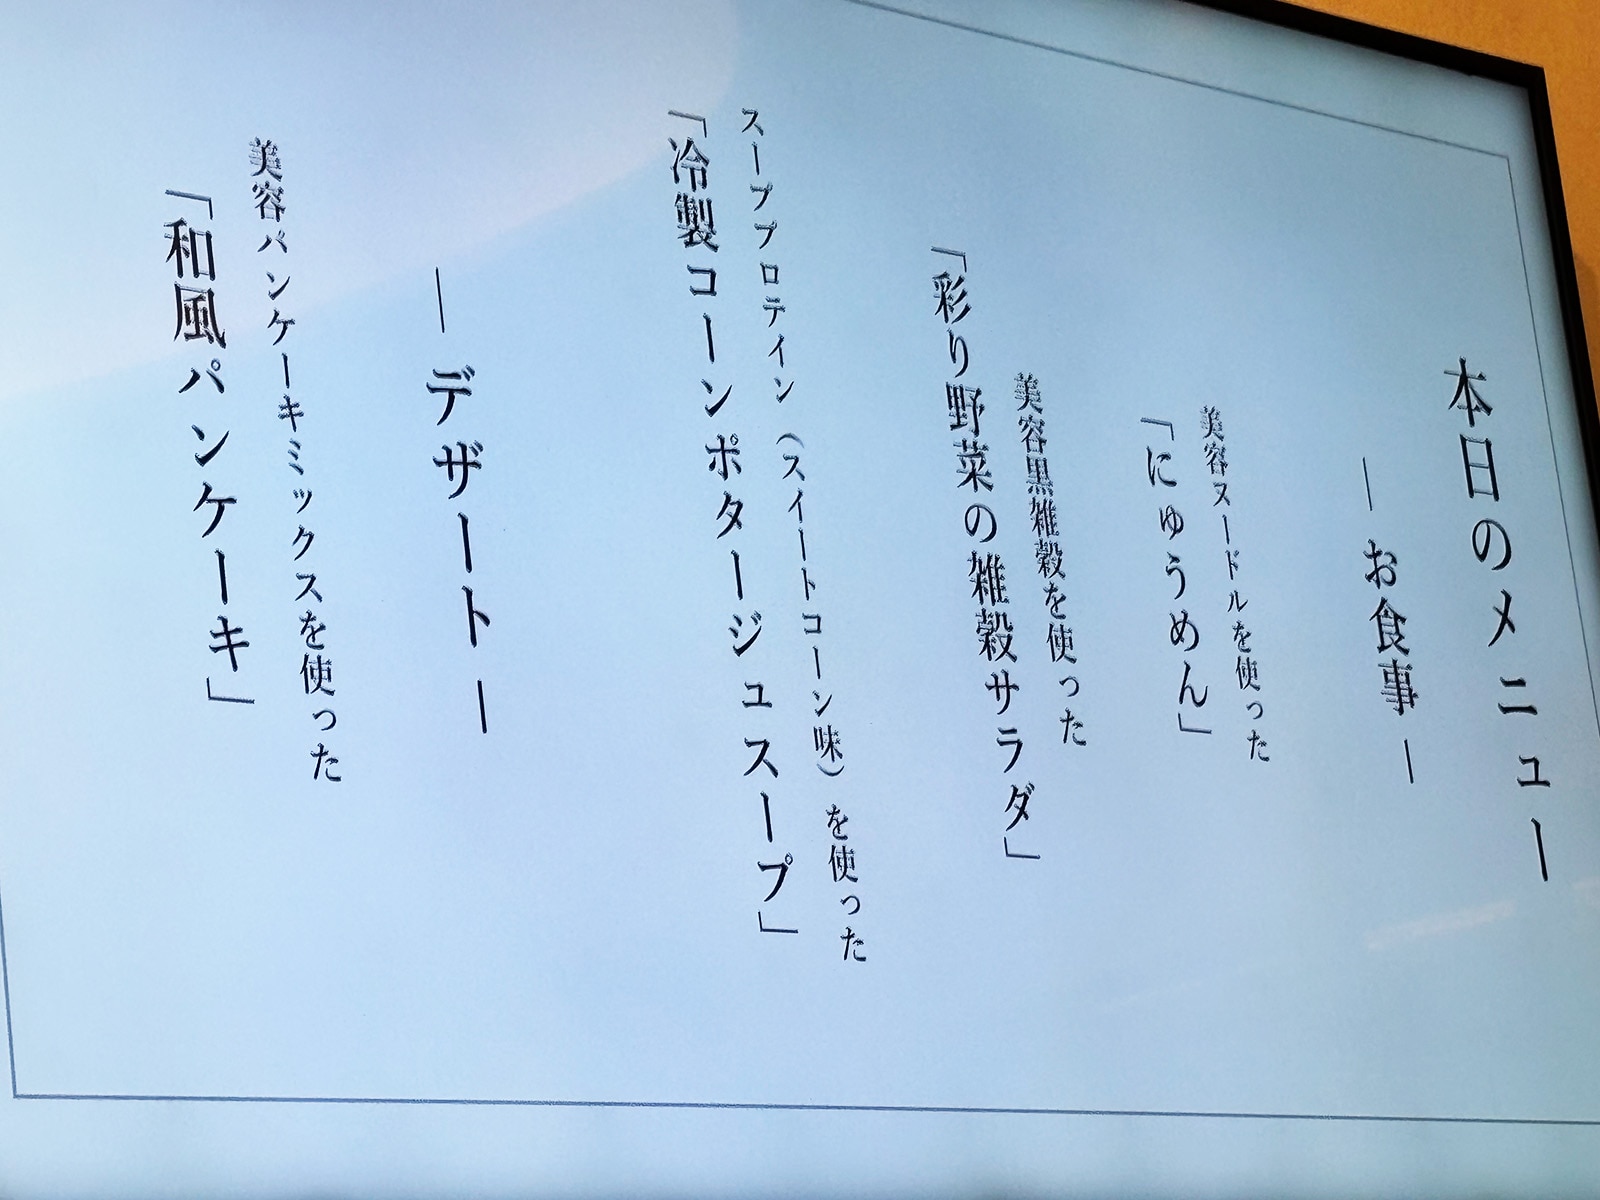 本日のメニュー
― お食事 ―
美容ヌードルを使った
「にゅうめん」
美容黒雑穀を使った
「彩り野菜の雑穀サラダ」
スーププロテイン（スイートコーン味）を使った
「冷製コーンポタージュスープ」
― デザート ―
美容パンケーキミックスを使った
「和風パンケーキ」